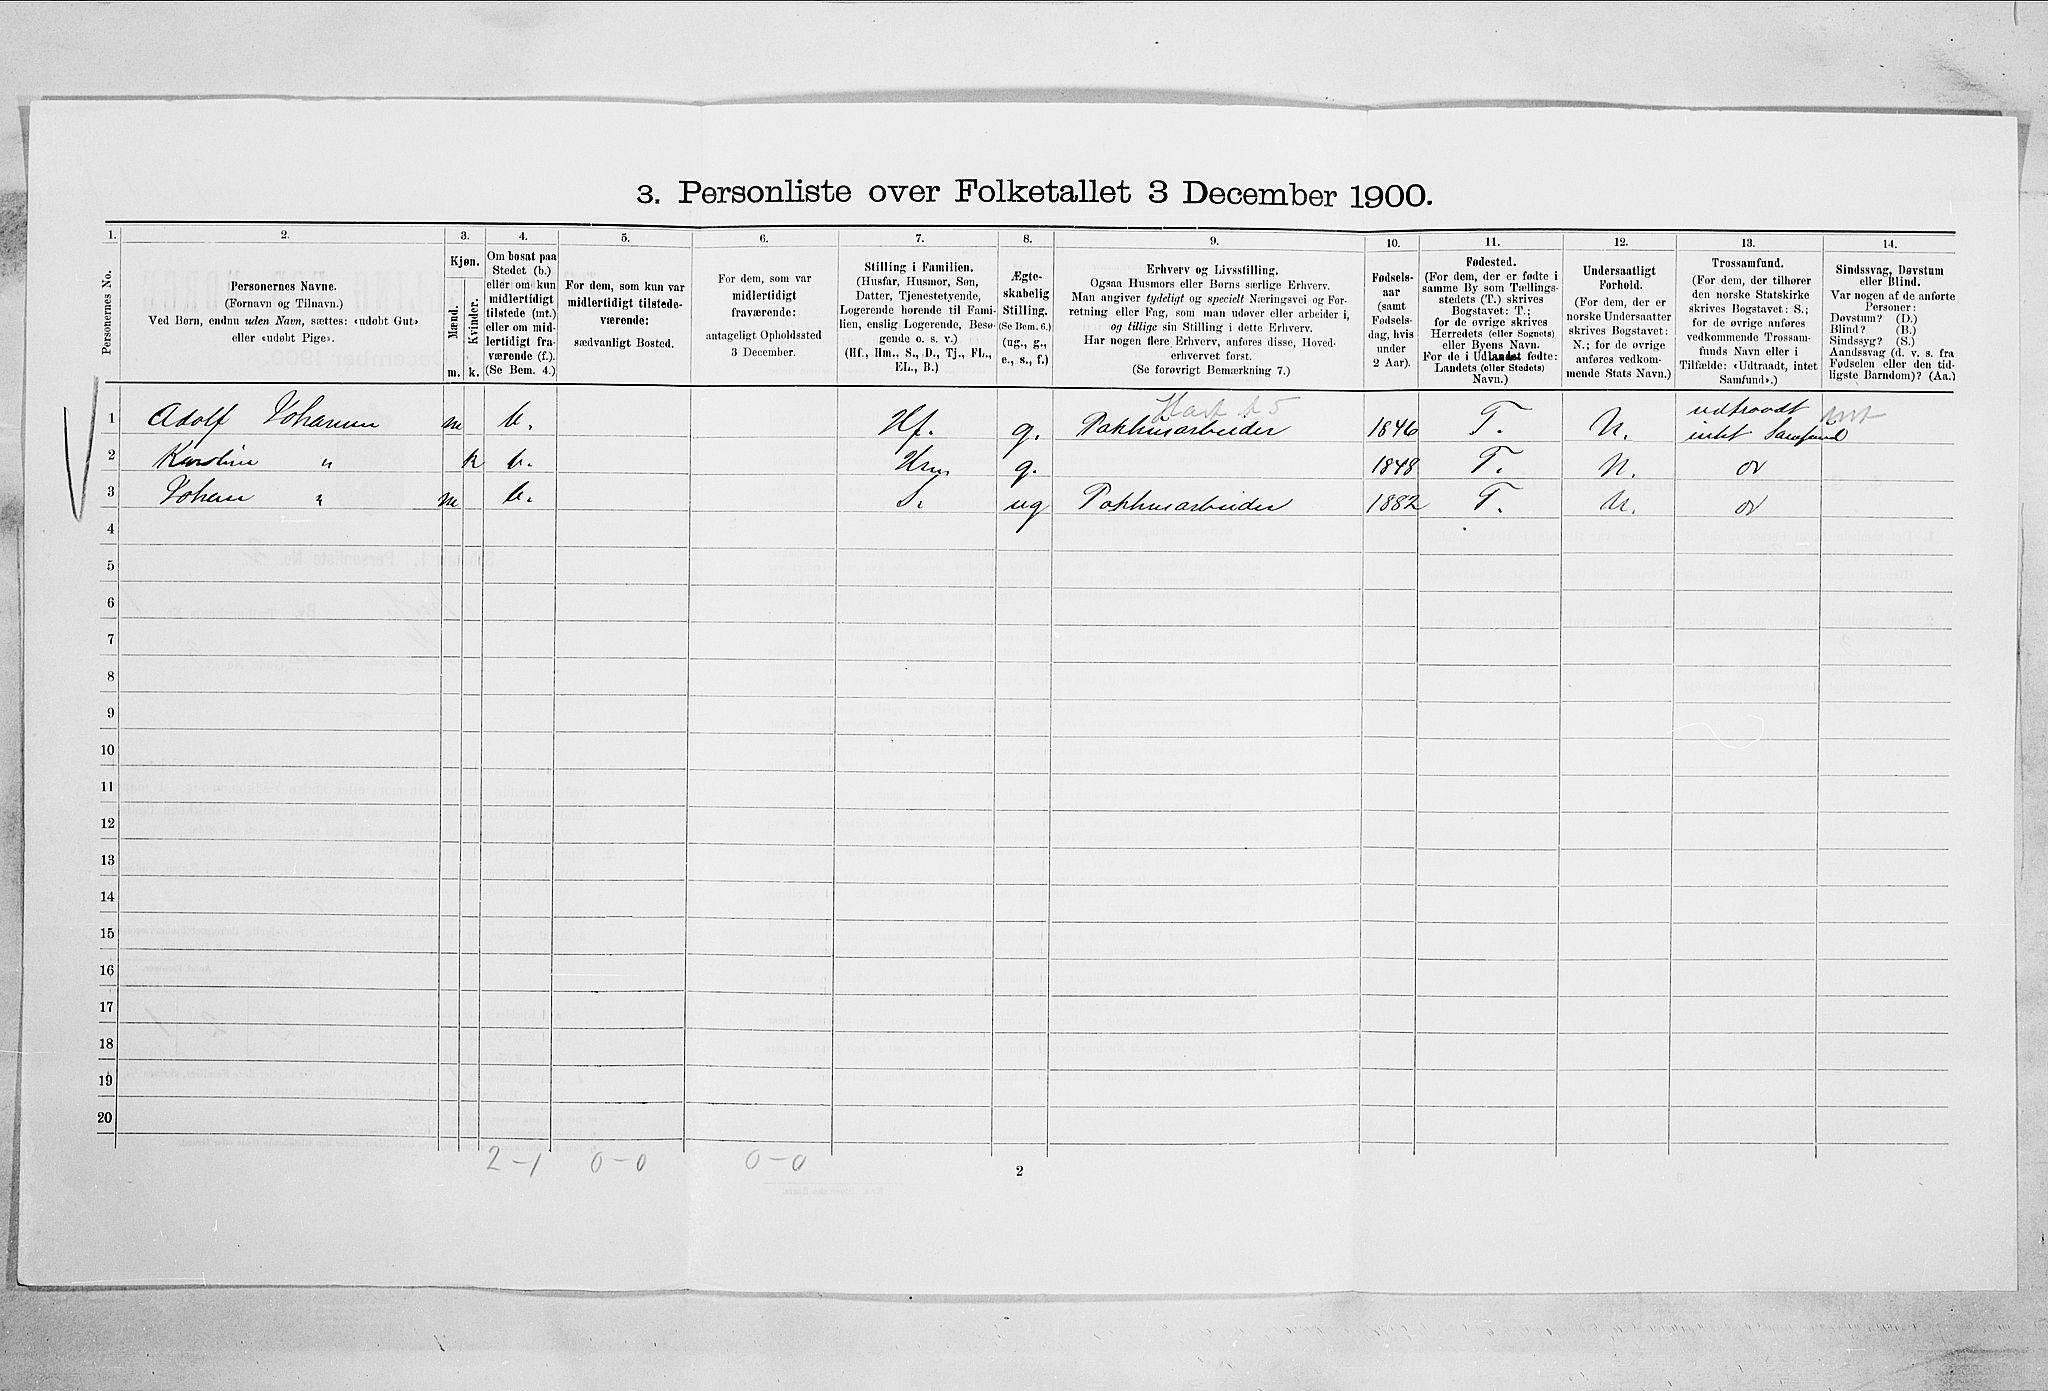 3. Personliste over Folketallet 3 December 1900.
1. 2. 3. 4. 5. 6. 7. 8. 9. 10. 11. 12. 13. 14.
Personernes No.
Personernes Navne.
(Fornavn og Tilnavn.)
Ved Børn, endnu uden Navn, sættes: «udøbt Gut»
eller «udøbt Pige».
Kjøn.
Mænd.
Kvinder.
m. k.
Om bosat paa
Stedet (b.)
eller om kun
midlertidigt
tilstede (mt.)
eller om mid-
lertidigt fra-
værende (f.).
(Se Bem. 4.)
For dem, som kun var
midlertidigt tilstede-
værende:
sædvanligt Bosted.
For dem, som var
midlertidigt
fraværende:
antageligt Opholdssted
3 December.
Stilling i Familien.
(Husfar, Husmor, Søn,
Datter, Tjenestetyende,
Logerende hørende til Fami-
lien, enslig Logerende, Besø-
gende o. s. v.)
(Hf., Hm., S., D., Tj., FL.,
EL., B.)
Ægte-
skabelig
Stilling.
(Se Bem. 6.)
(ug., g.,
e., s., f.)
Erhverv og Livsstilling.
Ogsaa Husmors eller Børns særlige Erhverv.
Man angiver tydeligt og specielt Næringsvei og For-
retning eller Fag, som man udøver eller arbeider i,
og tillige sin Stilling i dette Erhverv.
Har nogen flere Erhverv, anføres disse, Hoved-
erhvervet først.
(Se forøvrigt Bemærkning 7.)
Fødsels-
aar
(samt
Fødsels-
dag, hvis
under
2 Aar).
Fødested.
(For dem, der er fødte i
samme By som Tællings-
stedets (T.) skrives
Bogstavet: T.;
for de øvrige skrives
Herredets (eller Sognets)
eller Byens Navn.
For de i Udlandet fødte:
Landets (eller Stedets)
Navn.)
Undersaatligt
Forhold.
(For dem, der er
norske Undersaatter
skrives Bogstavet:
N.; for de øvrige
anføres vedkom-
mende Stats Navn.)
Trossamfund.
(For dem, der tilhører
den norske Statskirke
skrives Bogstavet: S.;
for de øvrige anføres
vedkommende Trossam-
funds Navn eller i
Tilfælde: «Udtraadt, intet
Samfund».)
Sindssvag, Døvstum
eller Blind.
Var nogen af de anførte
Personer:
Døvstum? (D.)
Blind? (B.)
Sindssyg? (S.)
Aandssvag (d. v. s. fra
Fødselen eller den tid-
ligste Barndom)? (Aa.)
udtraadt
1 Adolf Johansen m b. Hf. g. Pakhusarbeider 1846 T. N. intet Samfund
2 Karoline " k b. Hm. g. 1848 T. N. do
3 Johan " m b. S. ug Pakhusarbeider 1882 T. N. do
4
5
6
7
8
9
10
11
12
13
14
15
16
17
18
19
20
2-1 0-0 0-0
2